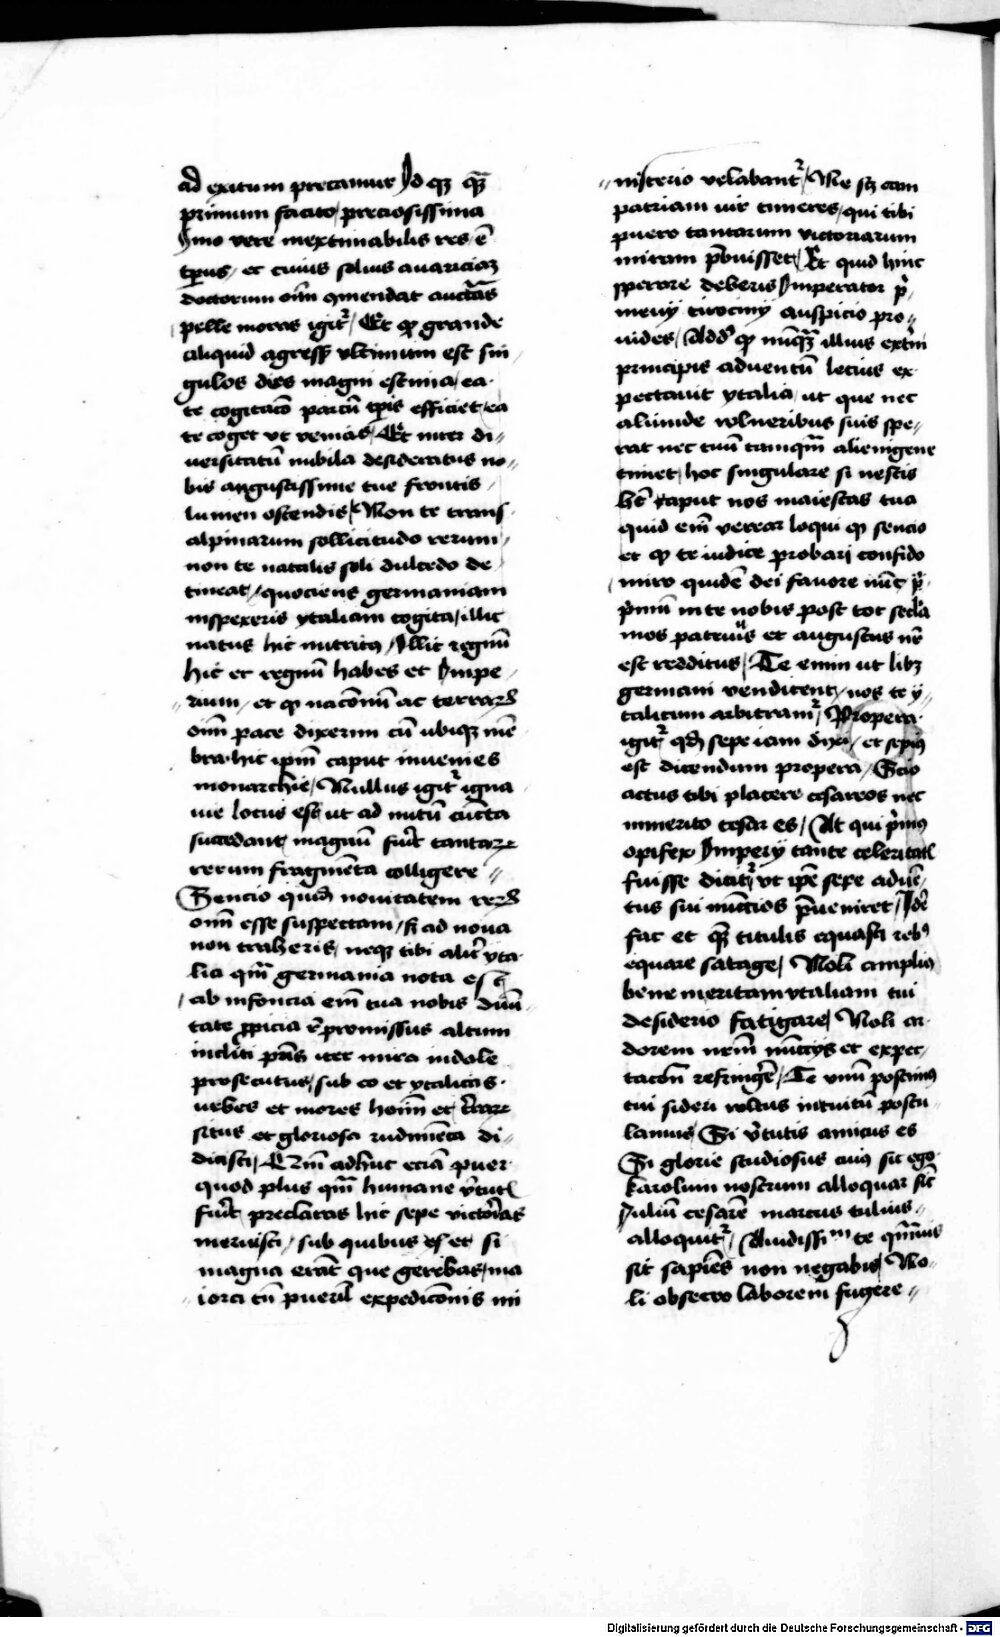 ad exitum precamur Id qꝫ qᷓꝫ
primum facito / preciosissima
Ymo vere inextimabilis res / ē
tp̄us / et cuius solius auariciaꝫ
doctorum oīm ꝯmendat auctᷓas
pelle moras igitᷣ / Et ꝙ grande
aliquid agress᷒ vltimum est sin
gulos dies magni estima / ea
te cogitacō parcū tp̄is efficiet / ea
te coget vt venias / Et inter di〃
uersitatū nubila desideratus no〃
bis angustissime tue frontis
lumen ostendis / Non te trans
alpinarum sollicitudo rerum
non te natalis soli dulcedo de
tineat / quociens germaniam
inspexeris ytaliam cogita / illic
natus hic nutritꝰ / Illic regnū
hic et regnū habes et Impe
〃rium / et ꝙ nacōnū ac terrarꝝ
oīm pace dixerim cū vbiqꝫ mē
bra hic ipm̄ caput inuenies
monarchie / Nullus igitᷣ igna
uie locus est vt ad nutū cūcta
succedant / magnū fūit tantaꝝ
rerum fragmēta colligere 〃
Sencio quidē nouitatem reꝝ
oīm esse suspectam / s̄ ad noua
non traheris / neqꝫ tibi alit᷒ yta
lia qᷓm germania nota est
ab infancia em̄ tua nobis diuīi
tate ꝓpicia r̄promissus altum
incliti prīs iter mira indole
prosecutus / sub eo et ytalicas
vrbes et mores homī et t̄rarꝝ
situs et gloriosa rudimēta di〃
dicisti / Em̄ adhuc eciā puer
quod plus qᷓm humane v̄tutꝭ
fūit preclaras hic sepe victōias
meruisti / sub quibus etsi et si
magna erāt que gerebas / ma
iorꝭ tn̄ pueriꝉ expedicōnis mi
〃nisterio velabantᷣ / Ne sꝫ eam
patriam vir timeres / qui tibi
puero tantarum victoriarum
miram p̄buisset / Et quid hinc
sperare deberis Imperator p̄
meuij tirocinij auspicio pro〃
uides / Add᷒ ꝙ nūqᷓꝫ illius ext̄ni
principis aduentū letius ex
pectauit ytalia / vt que nec
aliunde volneribus suis spe
rat nec tuū tamqᷓm alienigene
timet / hoc singulare si nescis
hꝫ caput nos maiestas tua
quid em̄ verear loqui ꝙ sencio
et ꝙ te iudice probari confido
miro quidē dei fauore nūc p̄
p̄mū in te nobis post tot secla
mos patrius et augustus nr̄
est redditus / Te enim vt libꝫ
germani vendicent / nos te y〃
talicum arbitramᷣ / Propera
igitᷣ qd̄ sepe iam dixi / et sepiꝰ
est dicendum propera / Scio
actus tibi placere cesareos nec
immerito cesar es / At qui p̄mꝰ
opifex Imperij tante celeritatꝭ
fuisse dicitᷣ / vt ip̄e sepe aduē
tus sui nūccios p̄ueniret / Id᷒
fac et qᷓꝫ titulis equasti rebꝰ
equare satage / Noli ampliꝰ
bene meritam ytaliam tui
desiderio fatigare / Noli ar
dorem nrm̄ nūccijs et expec
tacōn refringē / Te vnū poscimꝰ
tui sideri voltus intuitū postu
lamus / Si v̄tutis amicus es
Si glorie studiosus cuiꝰ sic ego
Karolum nostrum alloquar sic
Iuliū cesarē marcus tulius
alloquitᷣ / Audissiᵐ te qᷓmuis
sit sapiēs non negabis / No〃
li obsecro laborem fugere 〃
Digitalisierung gefördert durch die Deutsche Forschungsgemeinschaft - DFG